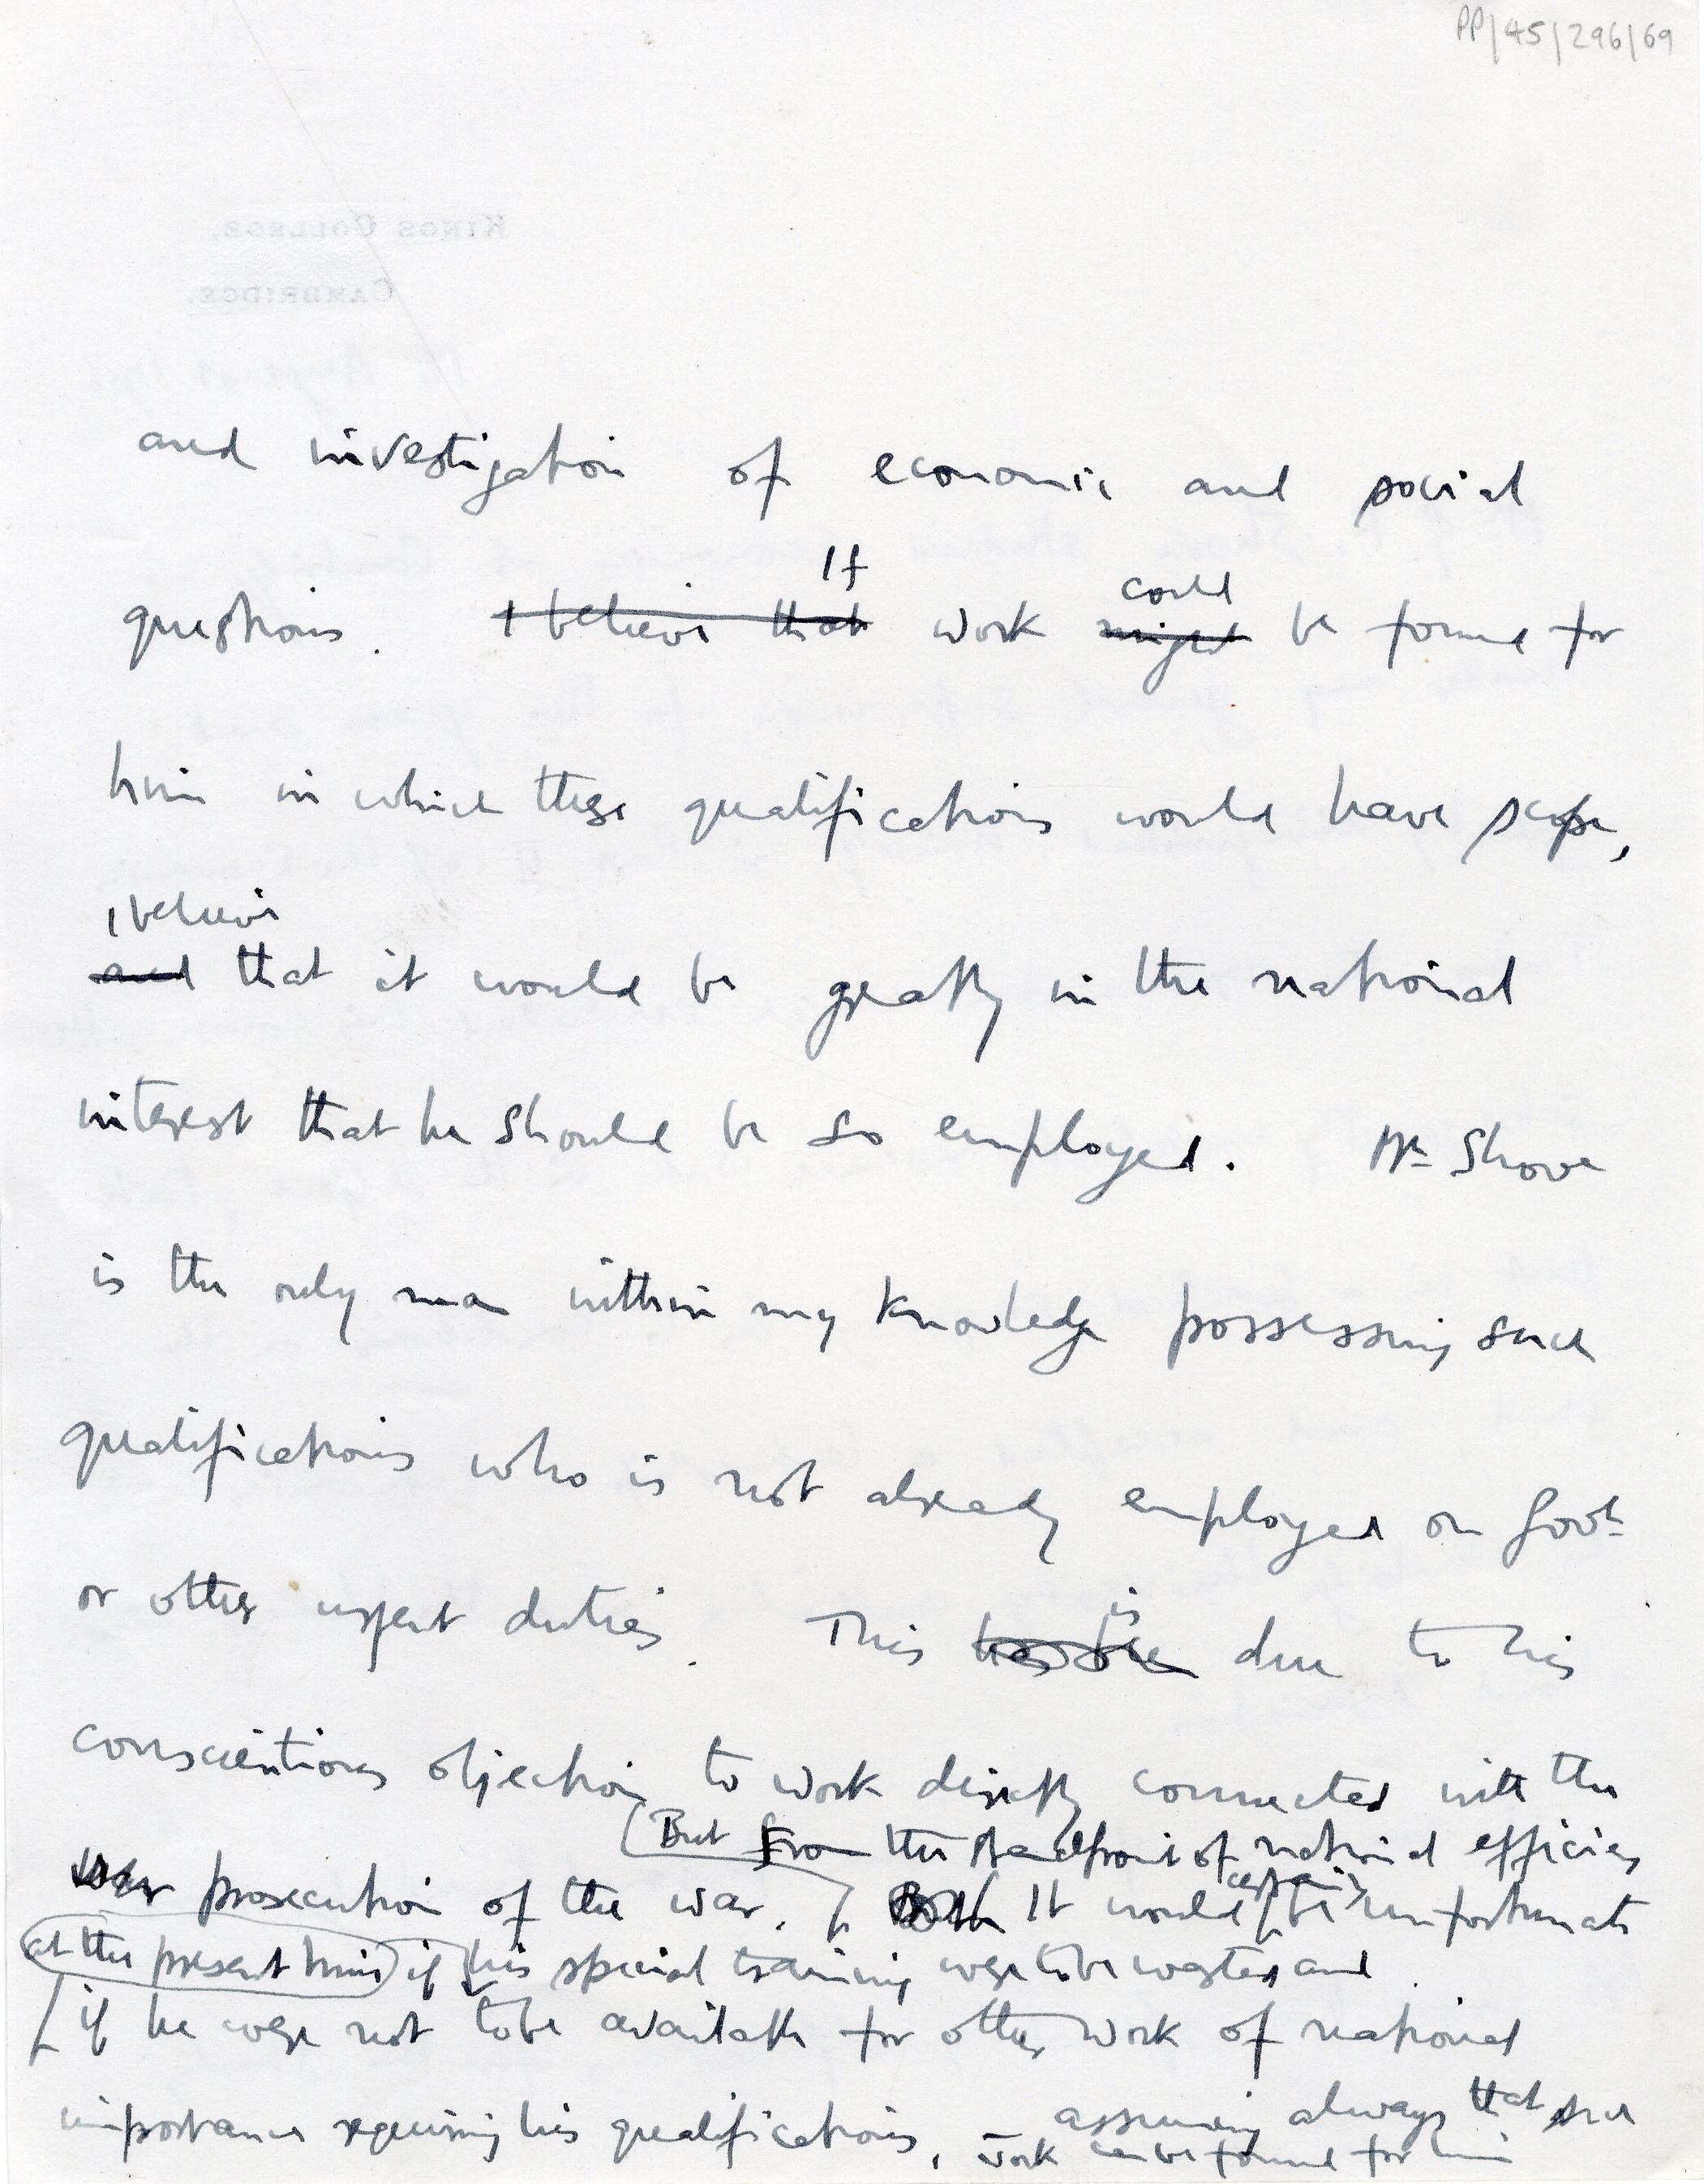 PP/45/296/69
KINGS COLLEGE,
CAMBRIDGE.
and investigation of economic and social
If could
questions. I believe that work might be found for
him in which these qualifications would have scope,
I believe
and that it would be greatly in the national
interest that he should be so employed. Mr Shove
is the only man within my knowledge possessing such
qualifications who is not already employed on Govt
or other urgent duties. This has been is due to his
conscientious objection to work directly connected with the
But from the standpoint of national efficiency
war prosecution of the war. It would certainly be unfortunate
at the present time if his special training were to be wasted and
if he were not to be available for other work of national
importance requiring his qualifications, assuming always that such
work can be found for him